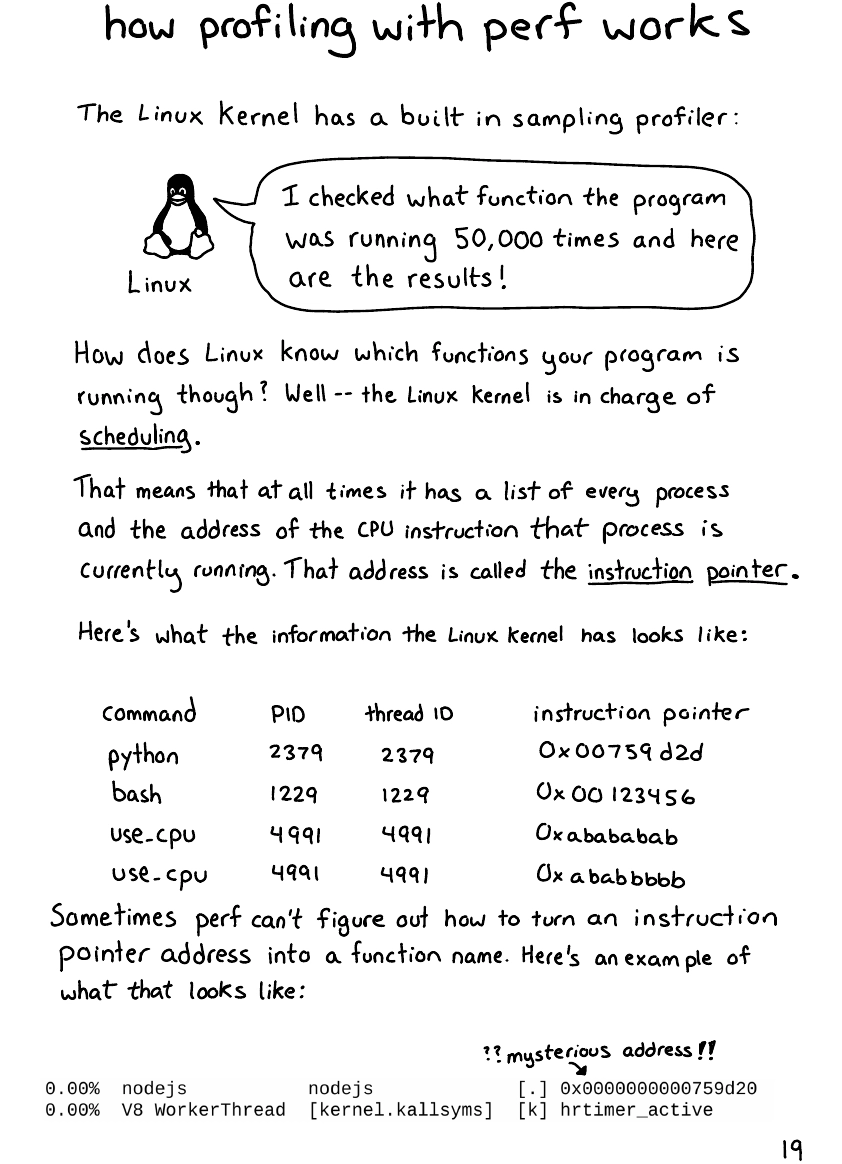 how profiling with perf works
The Linux Kernel has a built in sampling profiler:
I checked what function the program
was running 50,000 times and here
are the results!
Linux
How does Linux know which functions your program is
running though? Well -- the Linux kernel is in charge of
scheduling.
That means that at all times it has a list of every process
and the address of the CPU instruction that process is
currently running. That address is called the instruction pointer.
Here's what the information the Linux kernel has looks like:
command PID thread ID instruction pointer
python 2379 2379 0x00759d2d
bash 1229 1229 0x00123456
use_cpu 4991 4991 0xabababab
use_cpu 4991 4991 0xababbbbb
Sometimes perf can't figure out how to turn an instruction
pointer address into a function name. Here's an example of
what that looks like:
?? mysterious address!!
0.00% nodejs nodejs [.] 0x0000000000759d20
0.00% V8 WorkerThread [kernel.kallsyms] [k] hrtimer_active
19